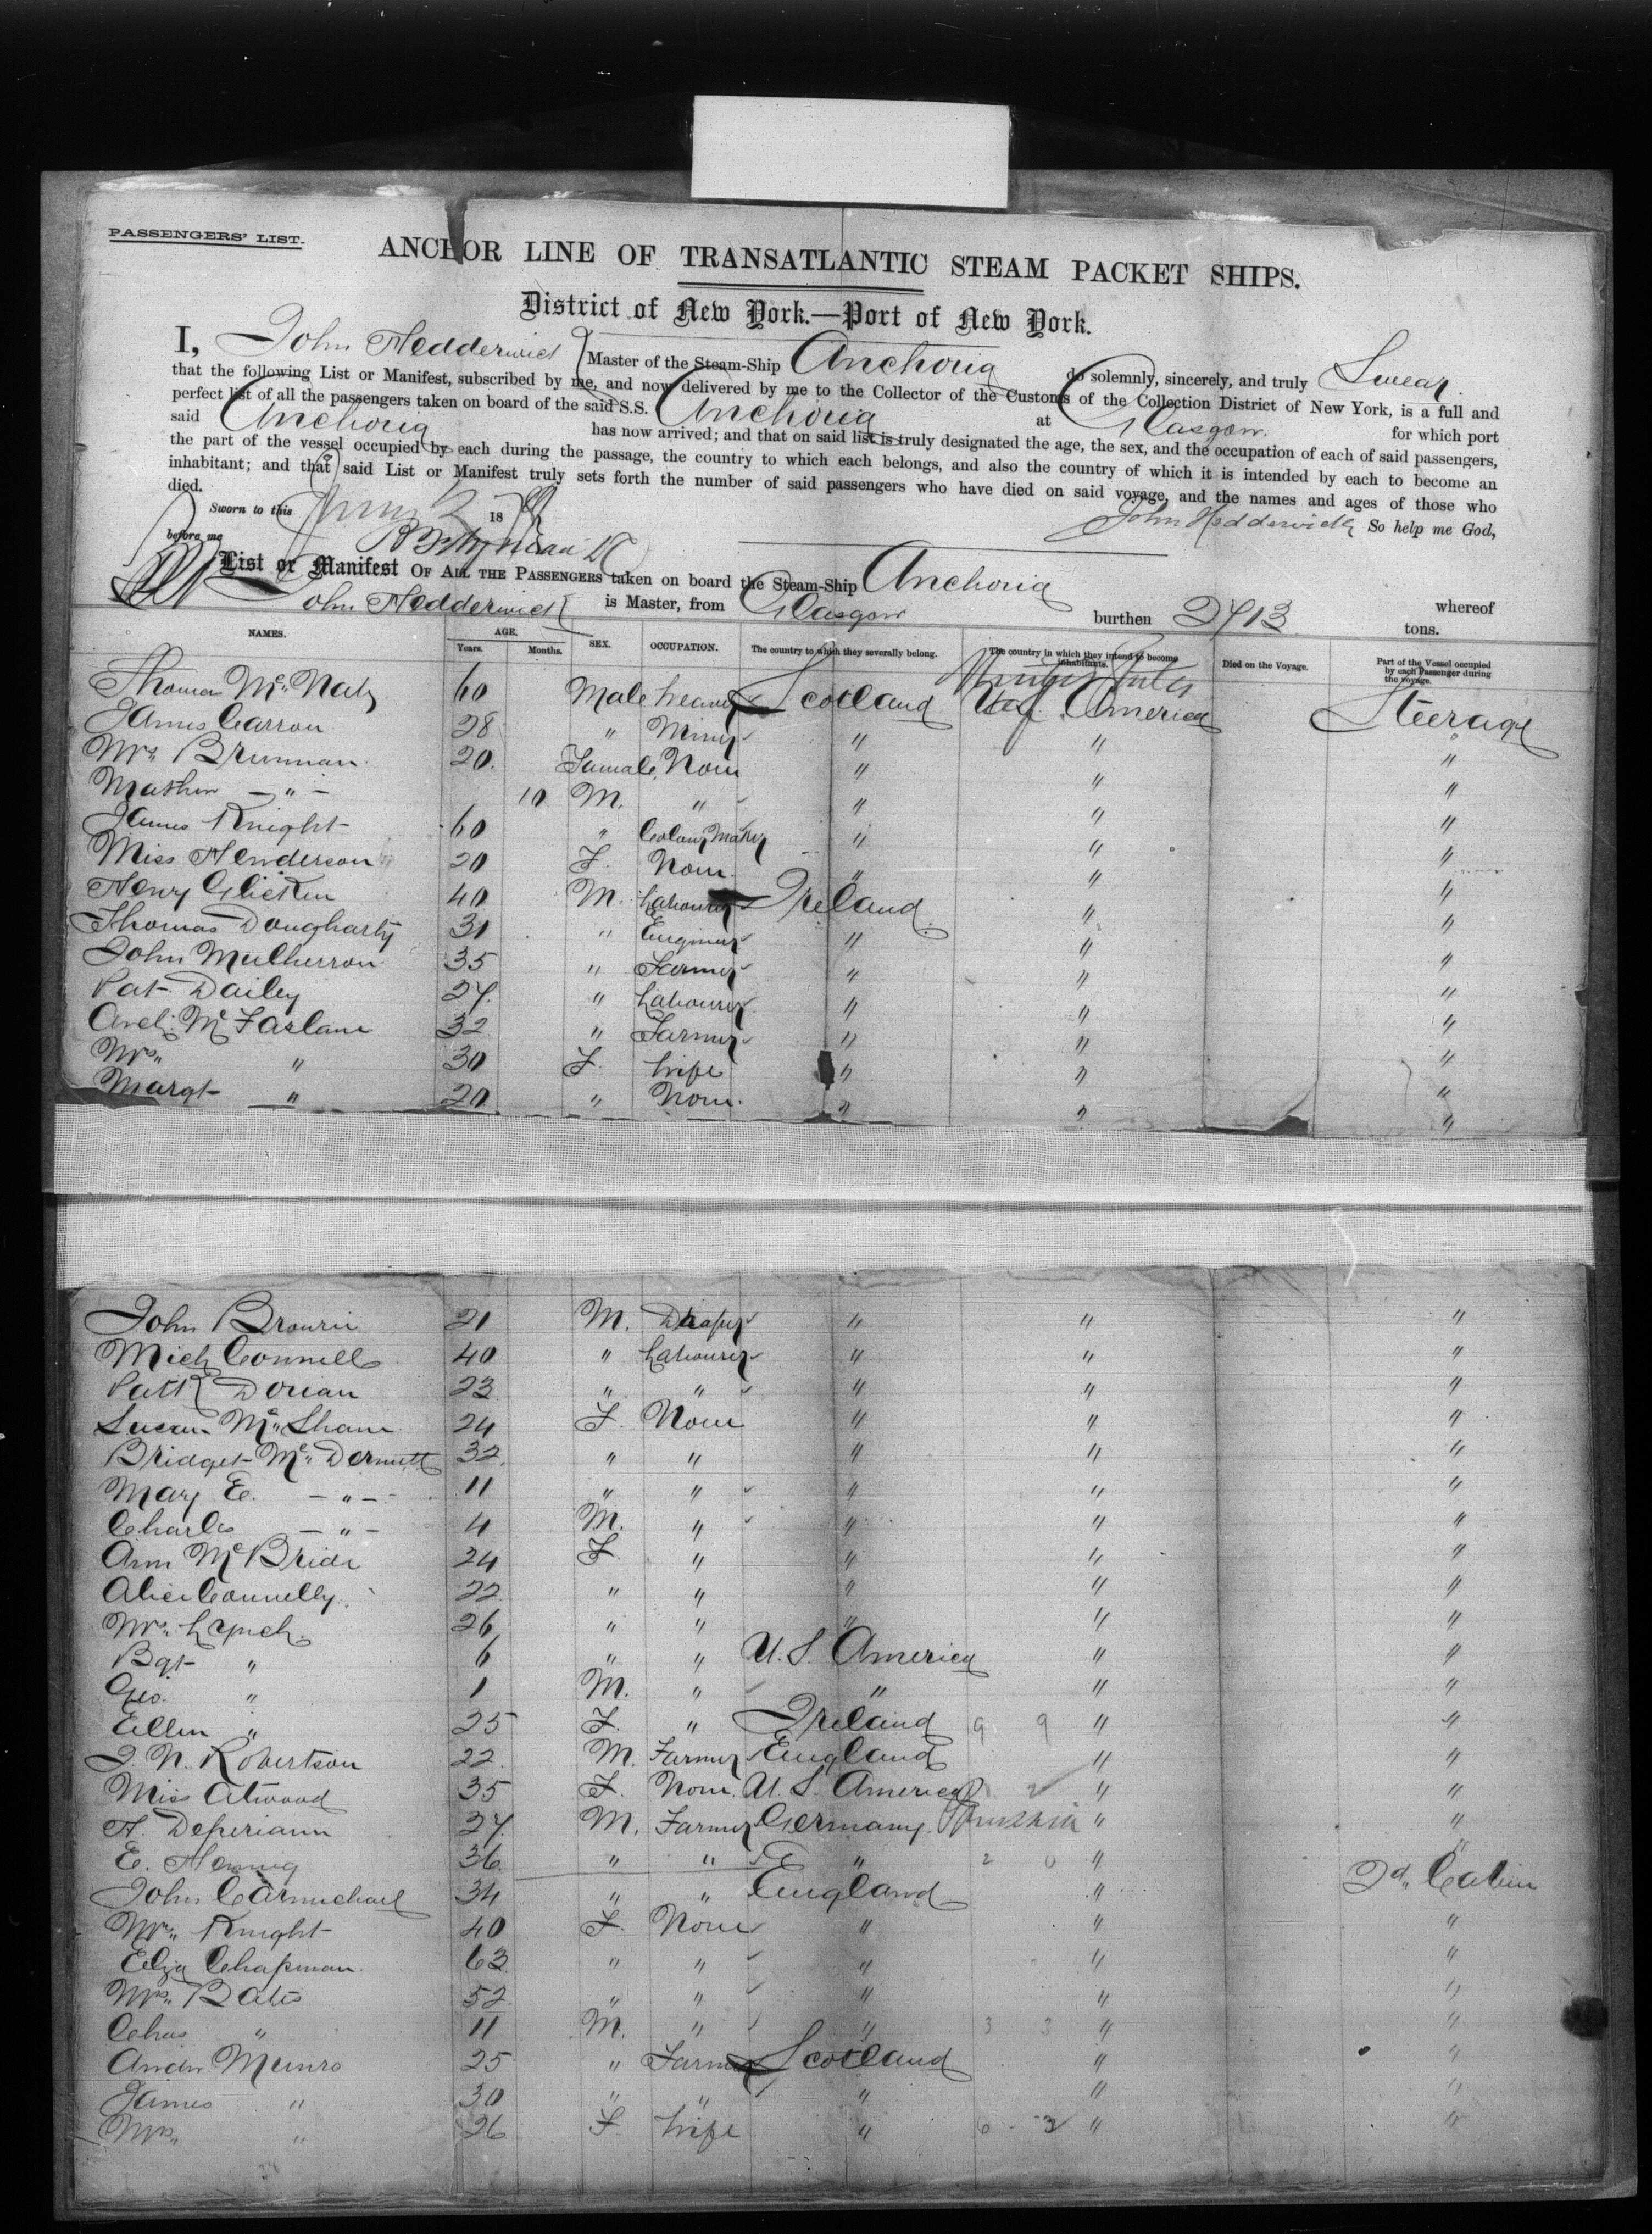 PASSENGERS' LIST.
ANCHOR LINE OF TRANSATLANTIC STEAM PACKET SHIPS.
District of New York.—Port of New York.
I, John Hedderwick Master of the Steam-Ship Anchoria do solemnly, sincerely, and truly Swear
that the following List or Manifest, subscribed by me, and now delivered by me to the Collector of the Customs of the Collection District of New York, is a full and
perfect list of all the passengers taken on board of the said S.S. Anchoria at Glasgow. for which port
said Anchoria has now arrived; and that on said list is truly designated the age, the sex, and the occupation of each of said passengers,
the part of the vessel occupied by each during the passage, the country to which each belongs, and also the country of which it is intended by each to become an
inhabitant; and that said List or Manifest truly sets forth the number of said passengers who have died on said voyage, and the names and ages of those who
died.
Sworn to this 18
John Hedderwick So help me God,
before me
List or Manifest OF ALL THE PASSENGERS taken on board the Steam-Ship Anchoria whereof
John Hedderwick is Master, from Glasgow burthen 2713 tons.
NAMES. AGE. SEX. OCCUPATION. The country to which they severally belong. The country in which they intend to become inhabitants. Died on the Voyage. Part of the Vessel occupied by each Passenger during the voyage.
Years. Months.
Thomas Mc Naly 60 Male Weaver Scotland United States of America Steerage
James Carron 28 " Miner " " "
Mrs Brennan. 20. Female None " " "
Mathew — " — 10 M. " " " "
James Knight 60 " " " "
Miss Henderson 20 F. None. " " "
Henry 40 M. Labourer Ireland " "
Thomas Dougharty 31 " Engineer " " "
John Mulherron 35 " Farmer " " "
Pat Dailey 27. " Labourer " " "
Arch. Mc Farlane 32. " Farmer " " "
Mrs. " 30 F. Wife " " "
Margt " 20 " None. " " "
John Brown 21 M. Draper " " "
Mich Connell 40 " Labourer " " "
Patk Dorian 23. " " " " "
Susan Mc Shane 24 F. None " " "
Bridget Mc Dermott 32. " " " " "
Mary E. — " — 11 " " " " "
Charles — " — 4 M. " " " "
Ann Mc Bride 24 F. " " " "
Alice Connelly. 22 " " " " "
Mrs. Lynch. 26 " " " " "
Bgt " 6 " " U.S. America " "
Geo. " 1 M. " " " "
Ellen " 25 F. " Ireland 9 9 " "
J. N. Robertson 22 M. Farmer England " "
Miss Atwood 35 F. None. U.S. America 2 " "
27. M. Farmer Germany. Prussia " "
E. Hennig 36 " " " 2 0 " "
John Carmichael 34 " " England " 2d. Cabin
Mrs. Knight 40 F. None " " "
Eliza Chapman. 63. " " " " "
Mrs. Bates 52 " " " " "
Chas " 11 M. " " 3 3 " "
Andw. Munro 25 " Farmer Scotland " "
James " 30 " " " " "
Mrs. " 26 F. Wife " 6 - 3 " "